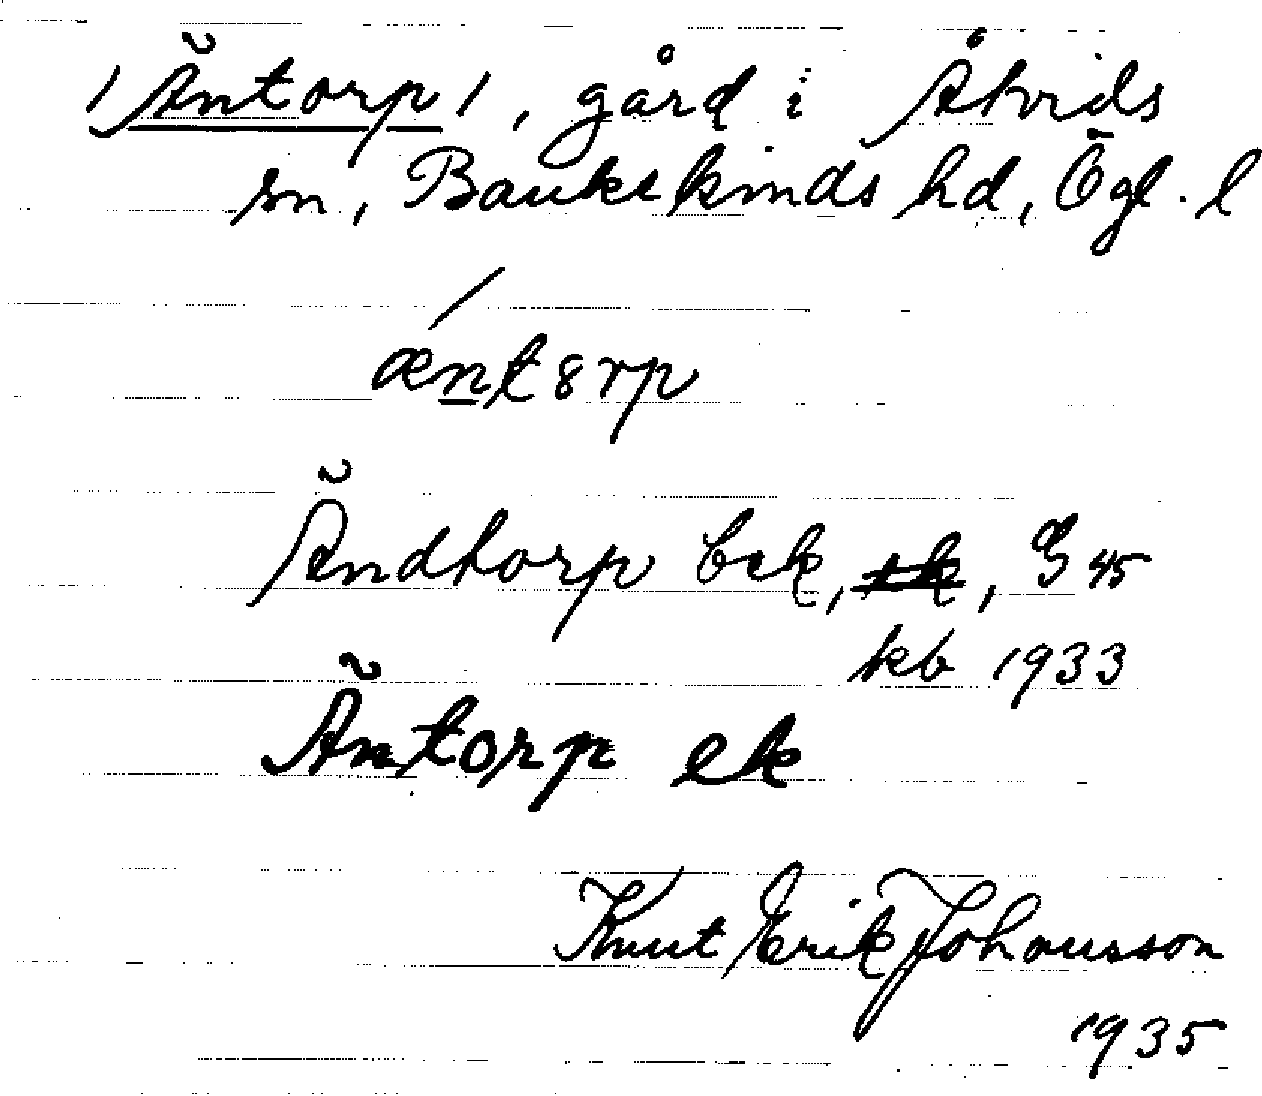 /Äntorp/, gård i Åtvids
sn, Bankekinds hd, Ögl. l
ænt8rp
Ändtorp bek, G 45
kb 1933
Äntorp ek
Knut Erik Johansson
1935